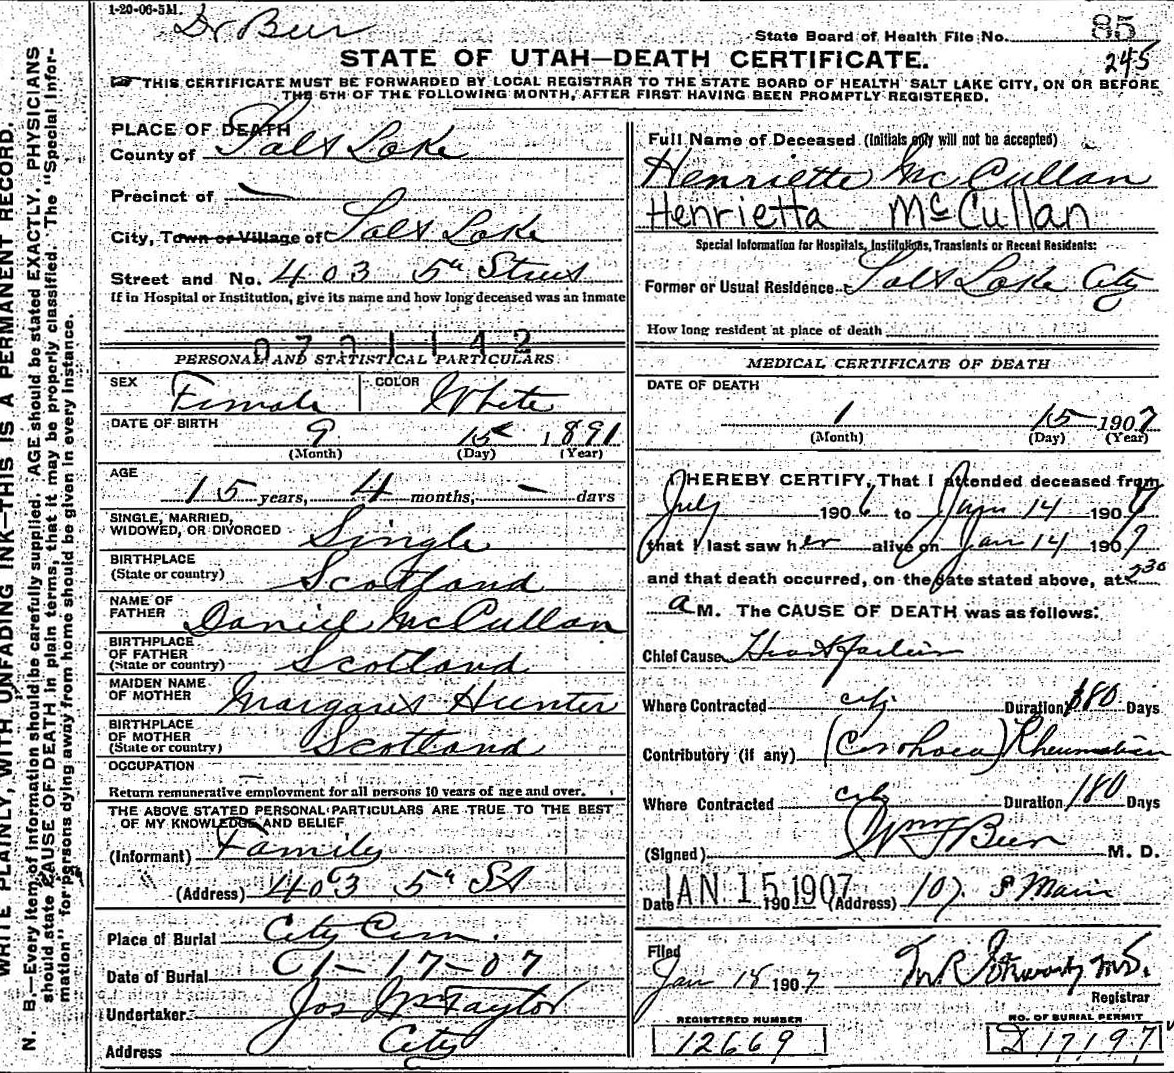 1-20-06-5M.
Dr Beer
85
State Board of Health File No.
245
STATE OF UTAH—DEATH CERTIFICATE.
THIS CERTIFICATE MUST BE FORWARDED BY LOCAL REGISTRAR TO THE STATE BOARD OF HEALTH SALT LAKE CITY, ON OR BEFORE
THE 5TH OF THE FOLLOWING MONTH, AFTER FIRST HAVING BEEN PROMPTLY REGISTERED.
WRITE PLAINLY, WITH UNFADING INK—THIS IS A PERMANENT RECORD.
N. B.—Every item of information should be carefully supplied. AGE should be stated EXACTLY. PHYSICIANS
should state CAUSE OF DEATH in plain terms, that it may be properly classified. The "Special Infor-
mation" for persons dying away from home should be given in every instance.
PLACE OF DEATH
County of Salt Lake
Precinct of —
City, Town or Village of Salt Lake
Street and No. 403 5th Street
If in Hospital or Institution, give its name and how long deceased was an inmate
0721142
PERSONAL AND STATISTICAL PARTICULARS
SEX Female COLOR White
DATE OF BIRTH 9 15 1891
(Month) (Day) (Year)
AGE
15 years, 4 months, — days
SINGLE, MARRIED,
WIDOWED, OR DIVORCED Single
BIRTHPLACE
(State or country) Scotland
NAME OF
FATHER Daniel McCullan
BIRTHPLACE
OF FATHER
(State or country) Scotland
MAIDEN NAME
OF MOTHER Margaret Hunter
BIRTHPLACE
OF MOTHER
(State or country) Scotland
OCCUPATION —
Return remunerative employment for all persons 10 years of age and over.
THE ABOVE STATED PERSONAL PARTICULARS ARE TRUE TO THE BEST
OF MY KNOWLEDGE AND BELIEF
(Informant) Family
(Address) 403 5th St
Place of Burial City Cem.
Date of Burial 1-17-07
Undertaker Jos Wm Taylor
Address City
Full Name of Deceased (Initials only will not be accepted)
Henriette McCullan
Henrietta McCullan
Special Information for Hospitals, Institutions, Transients or Recent Residents:
Former or Usual Residence Salt Lake City
How long resident at place of death
MEDICAL CERTIFICATE OF DEATH
DATE OF DEATH
1 15 1907
(Month) (Day) (Year)
I HEREBY CERTIFY, That I attended deceased from
July 1906 to Jan 14 1907
that I last saw her alive on Jan 14 1907
and that death occurred, on the date stated above, at 2 30
a M. The CAUSE OF DEATH was as follows:
Chief Cause Heart failure
Where Contracted city Duration 180 Days
Contributory (if any) Rheumatism
Where Contracted city Duration 180 Days
(Signed) Wm F Beer M. D.
Date JAN 15 1907 190 (Address) 107 S Main
Filed
Jan 18 1907
Registrar
REGISTERED NUMBER
12669
NO. OF BURIAL PERMIT
D 17197